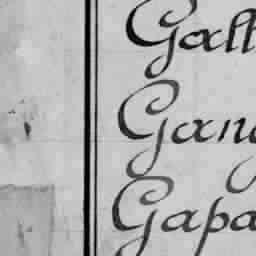 Gall
Gang
Gapa